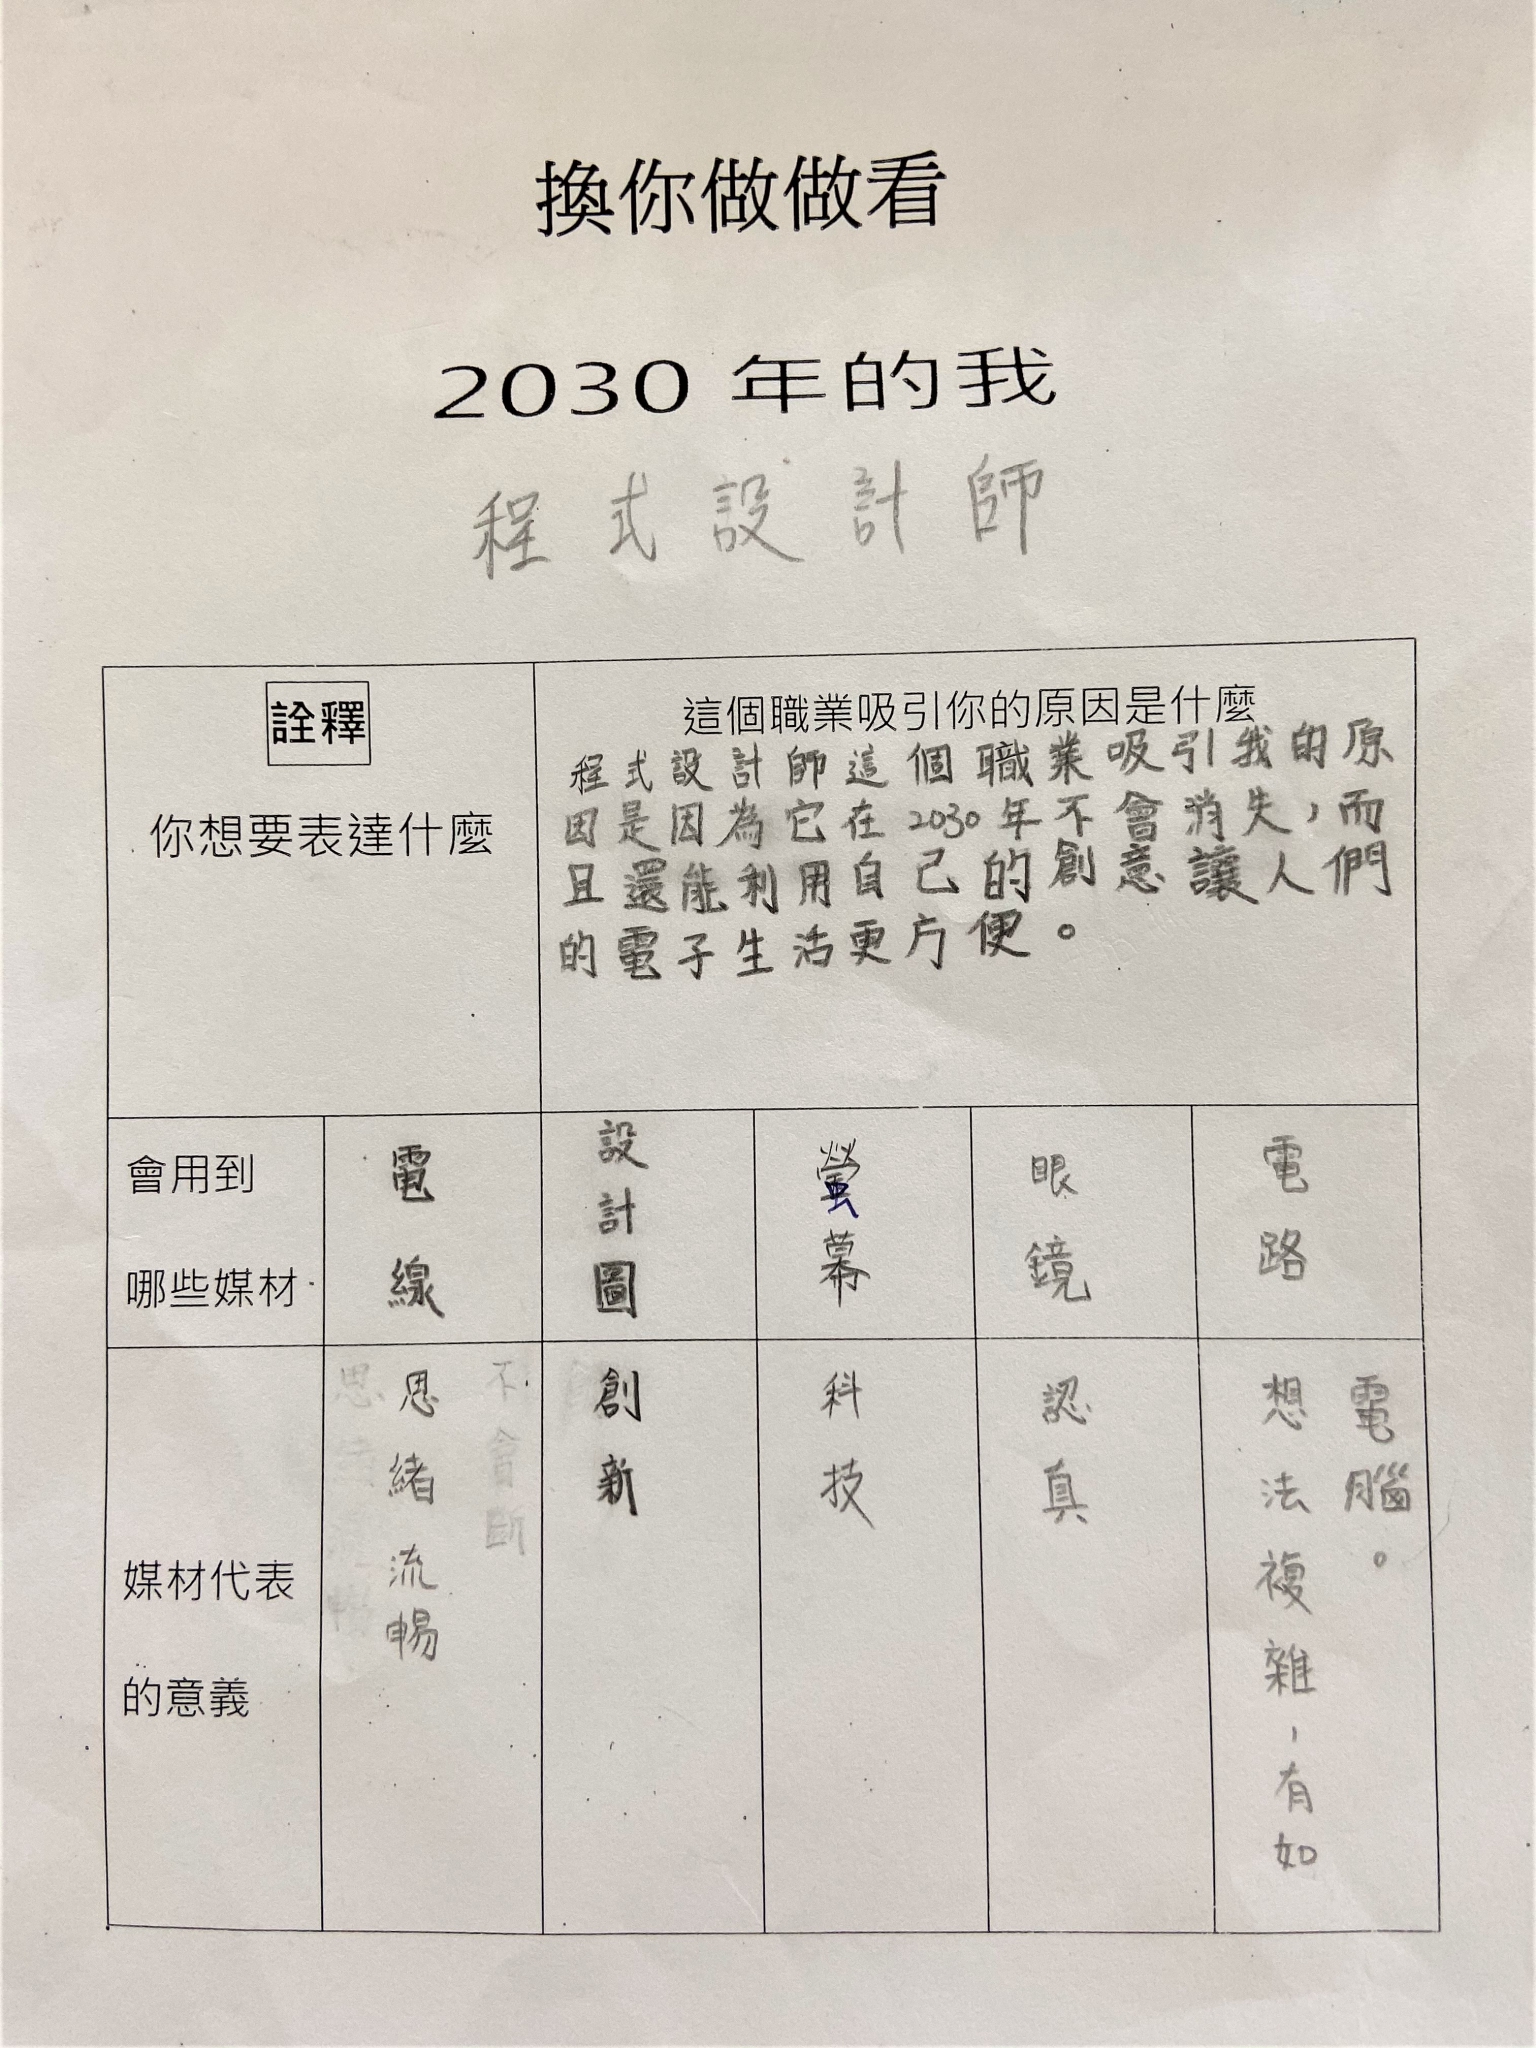 換你做做看
2030 年的我
程式設計師
詮釋
你想要表達什麼
這個職業吸引你的原因是什麼
程式設計師這個職業吸引我的原
因是因為它在2030年不會消失，而
且還能利用自己的創意讓人們
的電子生活更方便。
會用到
哪些媒材
電線
設計圖
螢幕
眼鏡
電路
媒材代表
的意義
思緒流暢
不會斷
創新
科技
認真
想法複雜，有如
電腦。